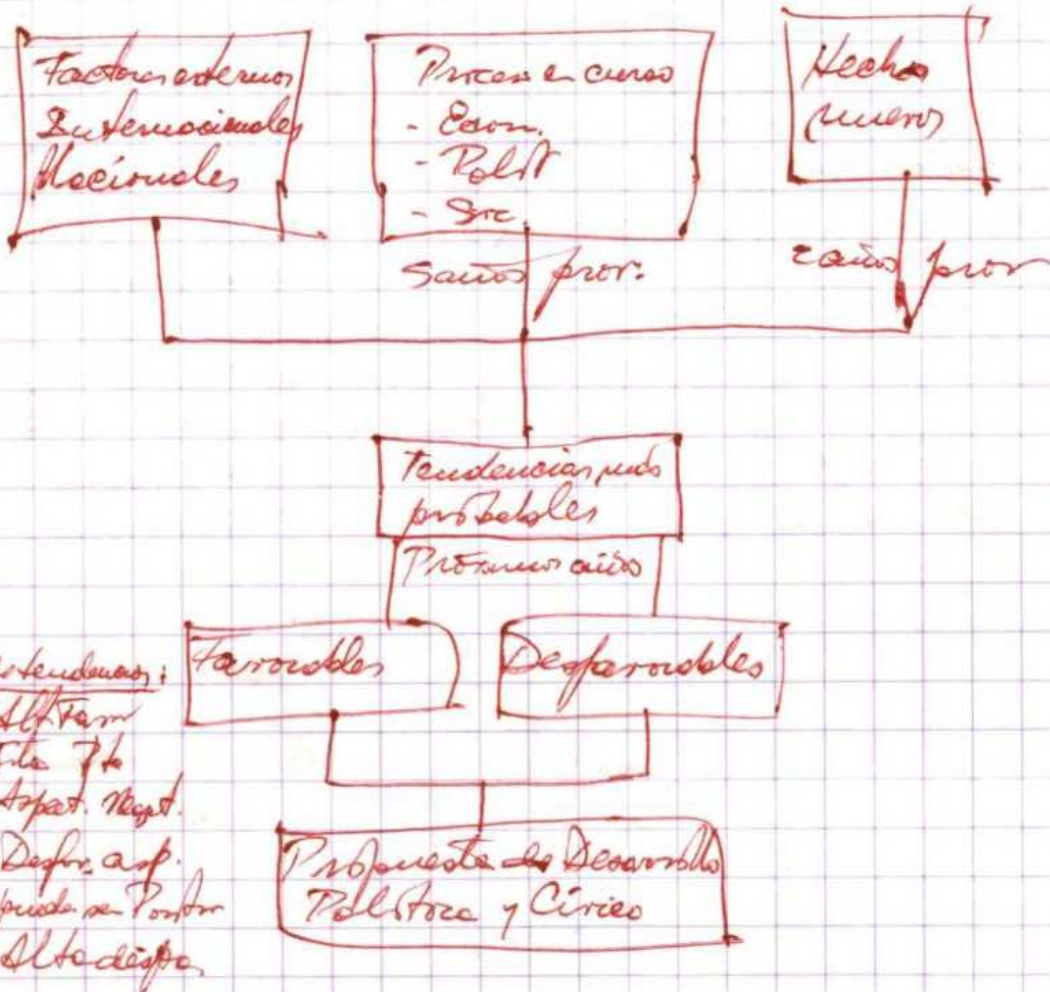 Factores externos
Internacionales
Nacionales
Proceso en curso
- Econ.
- Polít
- Soc.
5 años prox.
Hechos
nuevos
2 años prox
Tendencias más
probables
Próximos años
Favorables
Desfavorables
tendencias:
Alt Fav
Aspect. Negat.
Desfav. asp.
pueda ser Posit
Alta desfa
Propuesta de Desarrollo
Política y Cívico